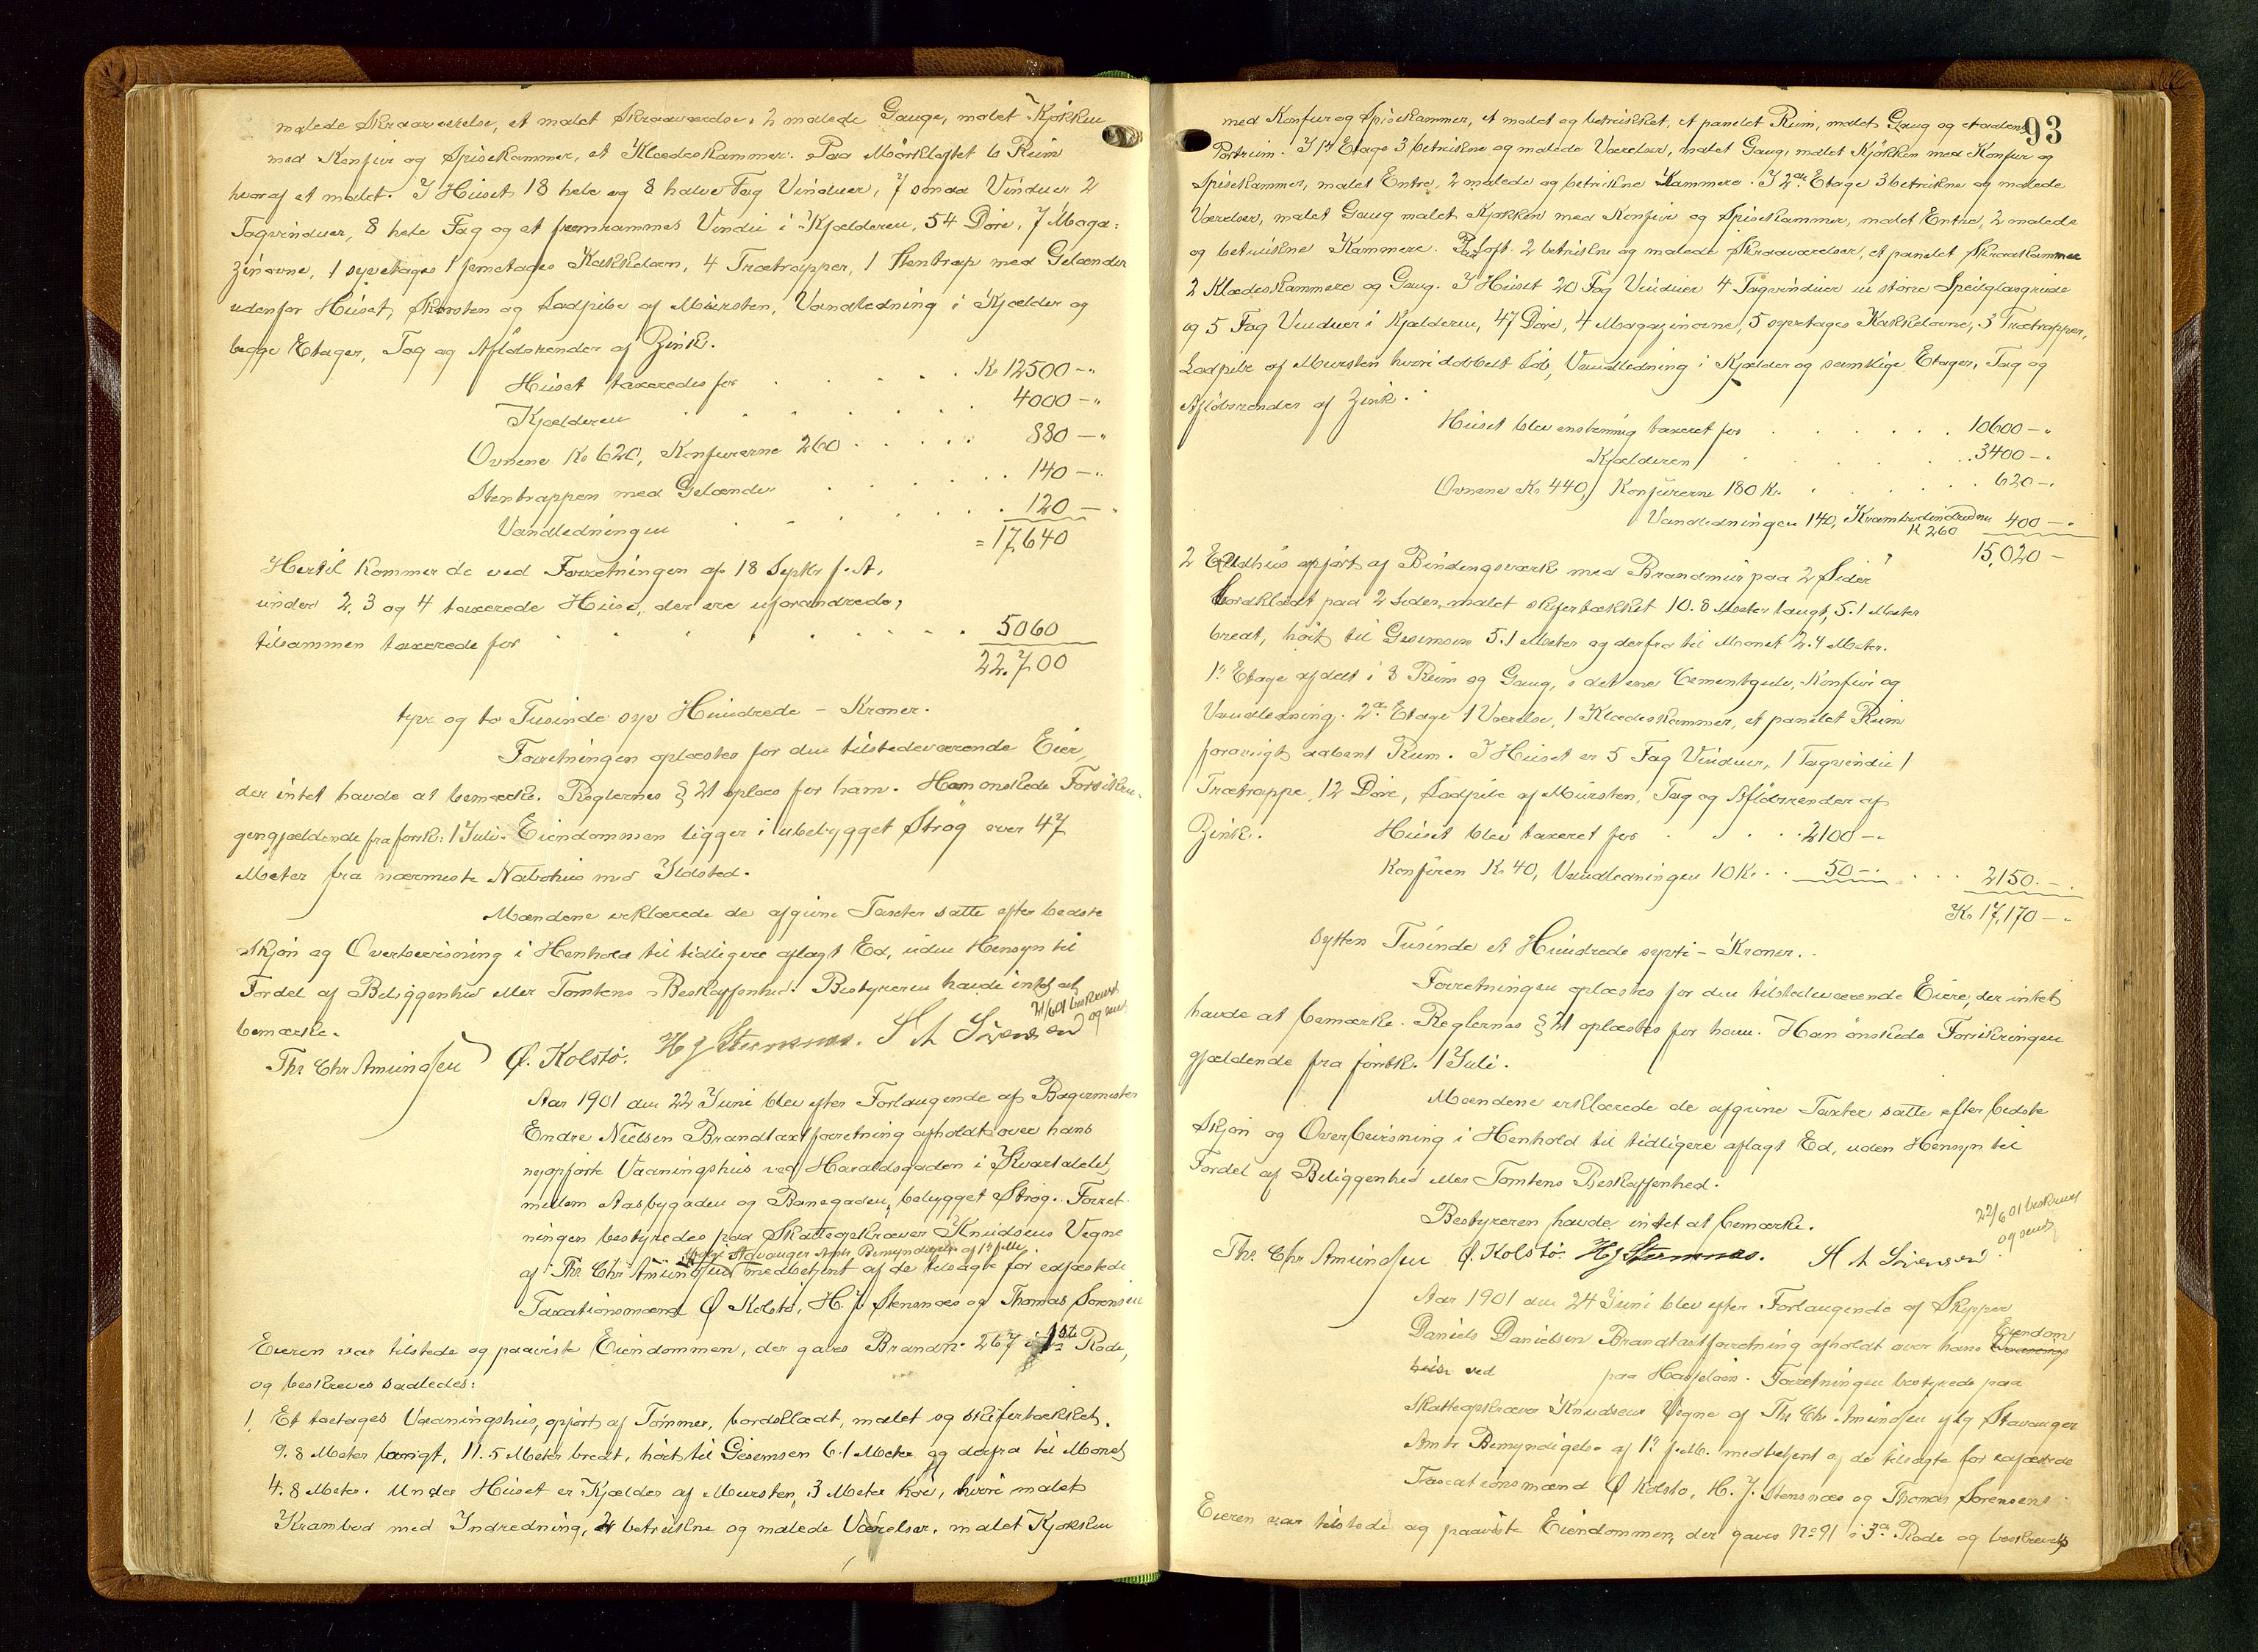 malede Skraaværelse, et malet Skraaværelse, 2 malede Gange, malet Kjøkken
med Konfur og Spisekammer, et Klædeskammer. Paa Mørkloftet 6 Rum
hvoraf et malet. I Huset 18 hele og 8 halve Fag Vinduer, 7 smaa Vinduer 2
Tagvinduer, 8 hele Fag og et femrammes Vindu i Kjælderen, 54 Døre, 7 Maga-
zinovne, 1 syvetages 1 femetages Kakkelovn, 4 Trætrapper, 1 Stentrap med Gelænder
udenfor Huset, Skorsten og Ladpibe af Mursten, Vandledning i Kjælder og
begge Etager, Tag og Afløbsrender af Zink.
Huset taxeredes for Kr 12500 -"
Kjælderen 4000 -"
Ovnene Kr 620, Konfurerne 260 880 -"
Stentrappen med Gelænder 140 -"
Vandledningen 120 -"
= 17,640
Hertil kommer de ved Forretningen af 18 Septbr f. A.
under 2, 3 og 4 taxerede Huse, der ere uforandrede,
tilsammen taxerede for 5060
22.700
tyve og to Tusinde syv Hundrede - Kroner.
Forretningen oplæstes for den tilstedeværende Eier,
der intet havde at bemærke. Reglernes § 21 oplæs for ham. Han ønskede Forsikrin-
gen gjældende fraførstk. 1 Juli. Eiendommen ligger i ubebygget Strøg over 47
Meter fra nærmeste Nabohus med Ildsted.
Mændene erklærede de afgivne Taxter satte efter bedste
Skjøn og Overbevisning i Henhold til tidligere aflagt Ed, uden Hensyn til
Fordel af Beliggenhed eller Tomtens Beskaffenhed. Bestyreren havde intet at
bemærke. 21/6 01 beskrevet og sendt
Ths Chr Amundsen Ø. Kolstø. H J Stensnæs. S A Sörensen
Aar 1901 den 22 Juni blev efter Forlangende af Bagermester
Endre Nielsen Brandtaxtforretning afholdt over hans
nyopførte Vaaningshus ved Haraldsgaden i Kvartalet
mellem Aasbygaden og Banegaden, bebygget Strøg. Forret-
ningen bestyredes paa Skatteopkræver Knudsens Vegne
ifølge Stavanger Amts Bemyndigelse af 1ste f. M.
af Ths. Chr Amundsen medbetjent af de tilsagte før edfæstede
Taxationsmænd Ø Kolstø, H. J. Stensnæs og Thomas Sørensen
Eieren var tilstede og paaviste Eiendommen, der gaves Brandn. 267 i 1ste Rode,
og beskreves saaledes:
1. Et toetages Vaaningshus, opført af Tømmer, bordklædt, malet og skifertækket.
9.8 Meter langt, 11.5 Meter bredt, høit til Gesimsen 6.1 Meter og derfra til Mønet
4.8 Meter. Under Huset er Kjælder af Mursten, 3 Meter høi, hvori malet
Krambod med Indredning, 2 betrukne og malede Værelser, malet Kjøkken
93
med Konfur og Spisekammer, et malet og betrukket, et panelet Rum, malet Gang og et andens
Portrum. I 1ste Etage 3 betrukne og malede Værelser, malet Gang, malet Kjøkken med Konfur og
Spisekammer, malet Entre, 2 malede og betrukne Kammere. I 2den Etage 3 betrukne og malede
Værelser, malet Gang malet Kjøkken med Konfur og Spisekammer, malet Entre, 2 malede
og betrukne Kammere. Paa Loft 2 betrukne og malede Skraaværelser, et panelet Skraakammer
2 Klædeskammere og Gang. I Huset 20 Fag Vinduer 4 Tagvinduer en større Speilglasrude
og 5 Fag Vinduer i Kjælderen, 47 Døre, 4 Magazinovne, 5 syvetages Kakkelovne, 3 Trætrapper,
Ladpibe af Mursten hvori dobbelt Løb, Vandledning i Kjælder og samtlige Etager, Tag og
Afløbsrender af Zink.
Huset blev enstemmig taxeret for 10600 -"
Kjælderen 3400 -"
Ovnene Kr 440, Konfurerne 180 Kr. 620 -"
Vandledningen 140, Krambodindredn. K 260 400 -"
15,020 -
2 Et Ildhus opført af Bindingsværk med Brandmur paa 2 Sider
bordklædt paa 2 Sider, malet skifertækket 10.8 Meter langt, 5.1 Meter
bredt, høit til Gesimsen 5.1 Meter og derfra til Mønet 2.4 Meter.
1ste Etage afdelt i 3 Rum og Gang, i det ene Cementgulv, Konfur og
Vandledning. 2den Etage 1 Værelse, 1 Klædeskammer, et panelet Rum
forøvrigt aabent Rum. I Huset er 5 Fag Vinduer, 1 Tagvindu 1
Trætrappe, 12 Døre, Ladpibe af Mursten, Tag og Afløbsrender af
Zink. Huset blev taxeret for 2100 -"
Konfuren Kr 40, Vandledningen 10 Kr. 50 -" 2150. -"
Kr 17,170 -"
sytten Tusinde et Hundrede sytti - Kroner.
Forretningen oplæstes for den tilstedeværende Eiere, der intet
havde at bemærke. Reglernes § 21 oplæstes for ham. Han ønskede Forsikringen
gjældende fra førstk. 1 Juli.
Mændene erklærede de afgivne Taxter satte efter bedste
Skjøn og Overbevisning i Henhold til tidligere aflagt Ed, uden Hensyn til
Fordel af Beliggenhed eller Tomtens Beskaffenhed.
Bestyreren havde intet at bemærke. 22/6 01 beskrevet og sendt
Ths. Chr Amundsen Ø. Kolstø. H J Stensnæs. S A Sörensen
Aar 1901 den 24 Juni blev efter Forlangende af Skipper
Daniels Danielsen Brandtaxtforretning afholdt over hans Eiendom
ved paa Hasseløen. Forretningen bestyrede paa
Skatteopkræver Knudsens Vegne af Ths Chr Amundsen iflg Stavanger
Amts Bemyndigelse af 1ste f. M. medbetjent af de tilsagte før edfæstede
Taxationsmænd Ø Kolstø, H. J. Stensnæs og Thomas Sørensen
Eieren var tilstede og paaviste Eiendommen, der gaves No 91 i 3die Rode og beskreves